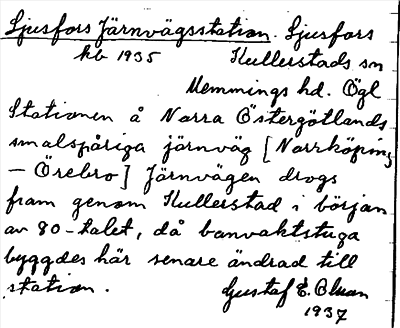 Ljusfors Järnvägsstation. Ljusfors
hb 1935 Kullerstads sn
Memmings hd. Ögl
Stationen å Norra Östergötlands
smalspåriga järnväg [Norrköping
– Örebro] Järnvägen drogs
fram genom Kullerstad i början
av 90-talet, då banvaktstuga
byggdes här senare ändrad till
station. Gustaf E.
1937